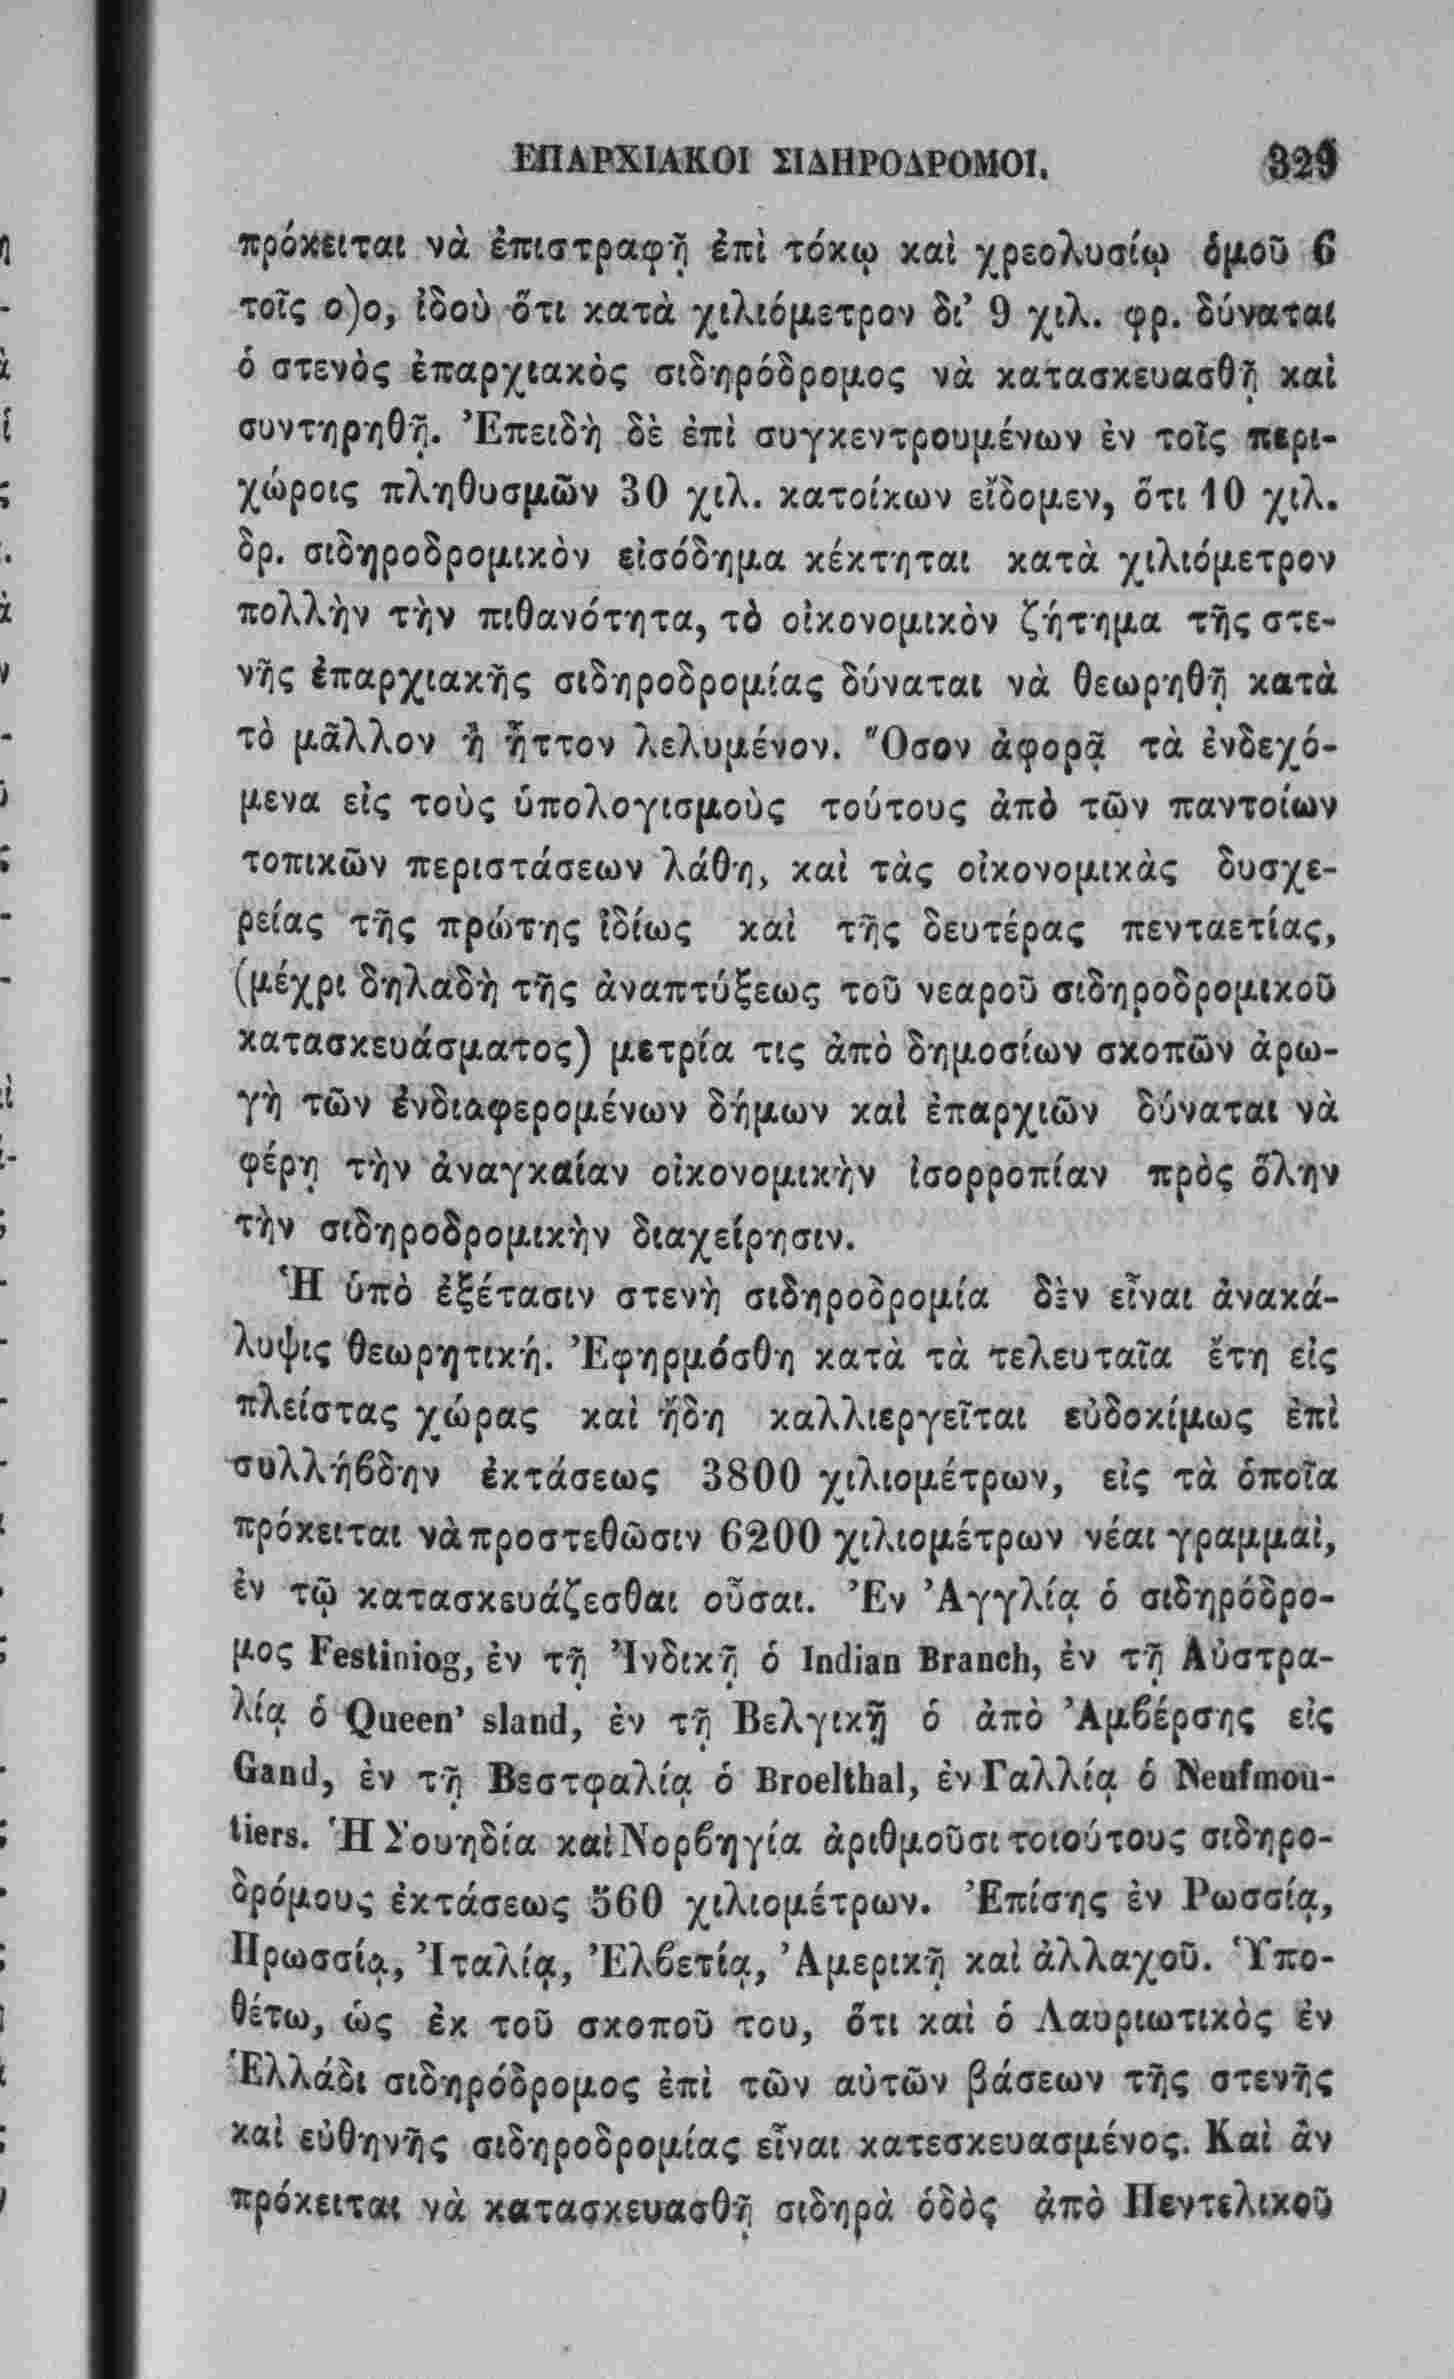 ΕΠΑΡΧΙΑΚΟΙ ΣΙΔΗΡΟΔΡΟΜΟΙ. 329
πρόκειται νὰ ἐπιστραφῇ ἐπὶ τόκῳ καὶ χρεολυσίῳ ὁμοῦ 6
τοῖς ο)ο, ἰδοὺ ὅτι κατὰ χιλιόμετρον δι’ 9 χιλ. φρ. δύναται
ὁ στενὸς ἐπαρχιακὸς σιδηρόδρομος νὰ κατασκευασθῇ καὶ
συντηρηθῇ. Ἐπειδὴ δὲ ἐπὶ συγκεντρουμένων ἐν τοῖς περι-
χώροις πληθυσμῶν 30 χιλ. κατοίκων εἴδομεν, ὅτι 10 χιλ.
δρ. σιδηροδρομικὸν εἰσόδημα κέκτηται κατὰ χιλιόμετρον
πολλὴν τὴν πιθανότητα, τὸ οἰκονομικὸν ζήτημα τῆς στε-
νῆς ἐπαρχιακῆς σιδηροδρομίας δύναται νὰ θεωρηθῇ κατὰ
τὸ μᾶλλον ἢ ἧττον λελυμένον. Ὅσον ἀφορᾷ τὰ ἐνδεχό-
μενα εἰς τοὺς ὑπολογισμοὺς τούτους ἀπὸ τῶν παντοίων
τοπικῶν περιστάσεων λάθη, καὶ τὰς οἰκονομικὰς δυσχε-
ρείας τῆς πρώτης ἰδίως καὶ τῆς δευτέρας πενταετίας,
(μέχρι δηλαδὴ τῆς ἀναπτύξεως τοῦ νεαροῦ σιδηροδρομικοῦ
κατασκευάσματος) μετρία τις ἀπὸ δημοσίων σκοπῶν ἀρω-
γὴ τῶν ἐνδιαφερομένων δήμων καὶ ἐπαρχιῶν δύναται νὰ
φέρῃ τὴν ἀναγκαίαν οἰκονομικὴν ἰσορροπίαν πρὸς ὅλην
τὴν σιδηροδρομικὴν διαχείρησιν.
Ἡ ὑπὸ ἐξέτασιν στενὴ σιδηροδρομία δὲν εἶναι ἀνακά-
λυψις θεωρητική. Ἐφηρμόσθη κατὰ τὰ τελευταῖα ἔτη εἰς
πλείστας χώρας καὶ ἤδη καλλιεργεῖται εὐδοκίμως ἐπὶ
συλλήβδην ἐκτάσεως 3800 χιλιομέτρων, εἰς τὰ ὁποῖα
πρόκειται νὰ προστεθῶσιν 6200 χιλιομέτρων νέαι γραμμαὶ,
ἐν τῷ κατασκευάζεσθαι οὖσαι. Ἐν Ἀγγλίᾳ ὁ σιδηρόδρο-
μος Festiniog, ἐν τῇ Ἰνδικῇ ὁ Indian Branch, ἐν τῇ Αὐστρα-
λίᾳ ὁ Queen’ sland, ἐν τῇ Βελγικῇ ὁ ἀπὸ Ἀμβέρσης εἰς
Gand, ἐν τῇ Βεστφαλίᾳ ὁ Broelthal, ἐν Γαλλίᾳ ὁ Neufmou-
tiers. Ἡ Σουηδία καὶ Νορβηγία ἀριθμοῦσι τοιούτους σιδηρο-
δρόμους ἐκτάσεως 560 χιλιομέτρων. Ἐπίσης ἐν Ρωσσίᾳ,
Πρωσσίᾳ, Ἰταλίᾳ, Ἐλβετίᾳ, Ἀμερικῇ καὶ ἀλλαχοῦ. Ὑπο-
θέτω, ὡς ἐκ τοῦ σκοποῦ του, ὅτι καὶ ὁ Λαυριωτικὸς ἐν
Ἑλλάδι σιδηρόδρομος ἐπὶ τῶν αὐτῶν βάσεων τῆς στενῆς
καὶ εὐθηνῆς σιδηροδρομίας εἶναι κατεσκευασμένος. Καὶ ἂν
πρόκειται νὰ κατασκευασθῇ σιδηρὰ ὁδὸς ἀπὸ Πεντελικοῦ